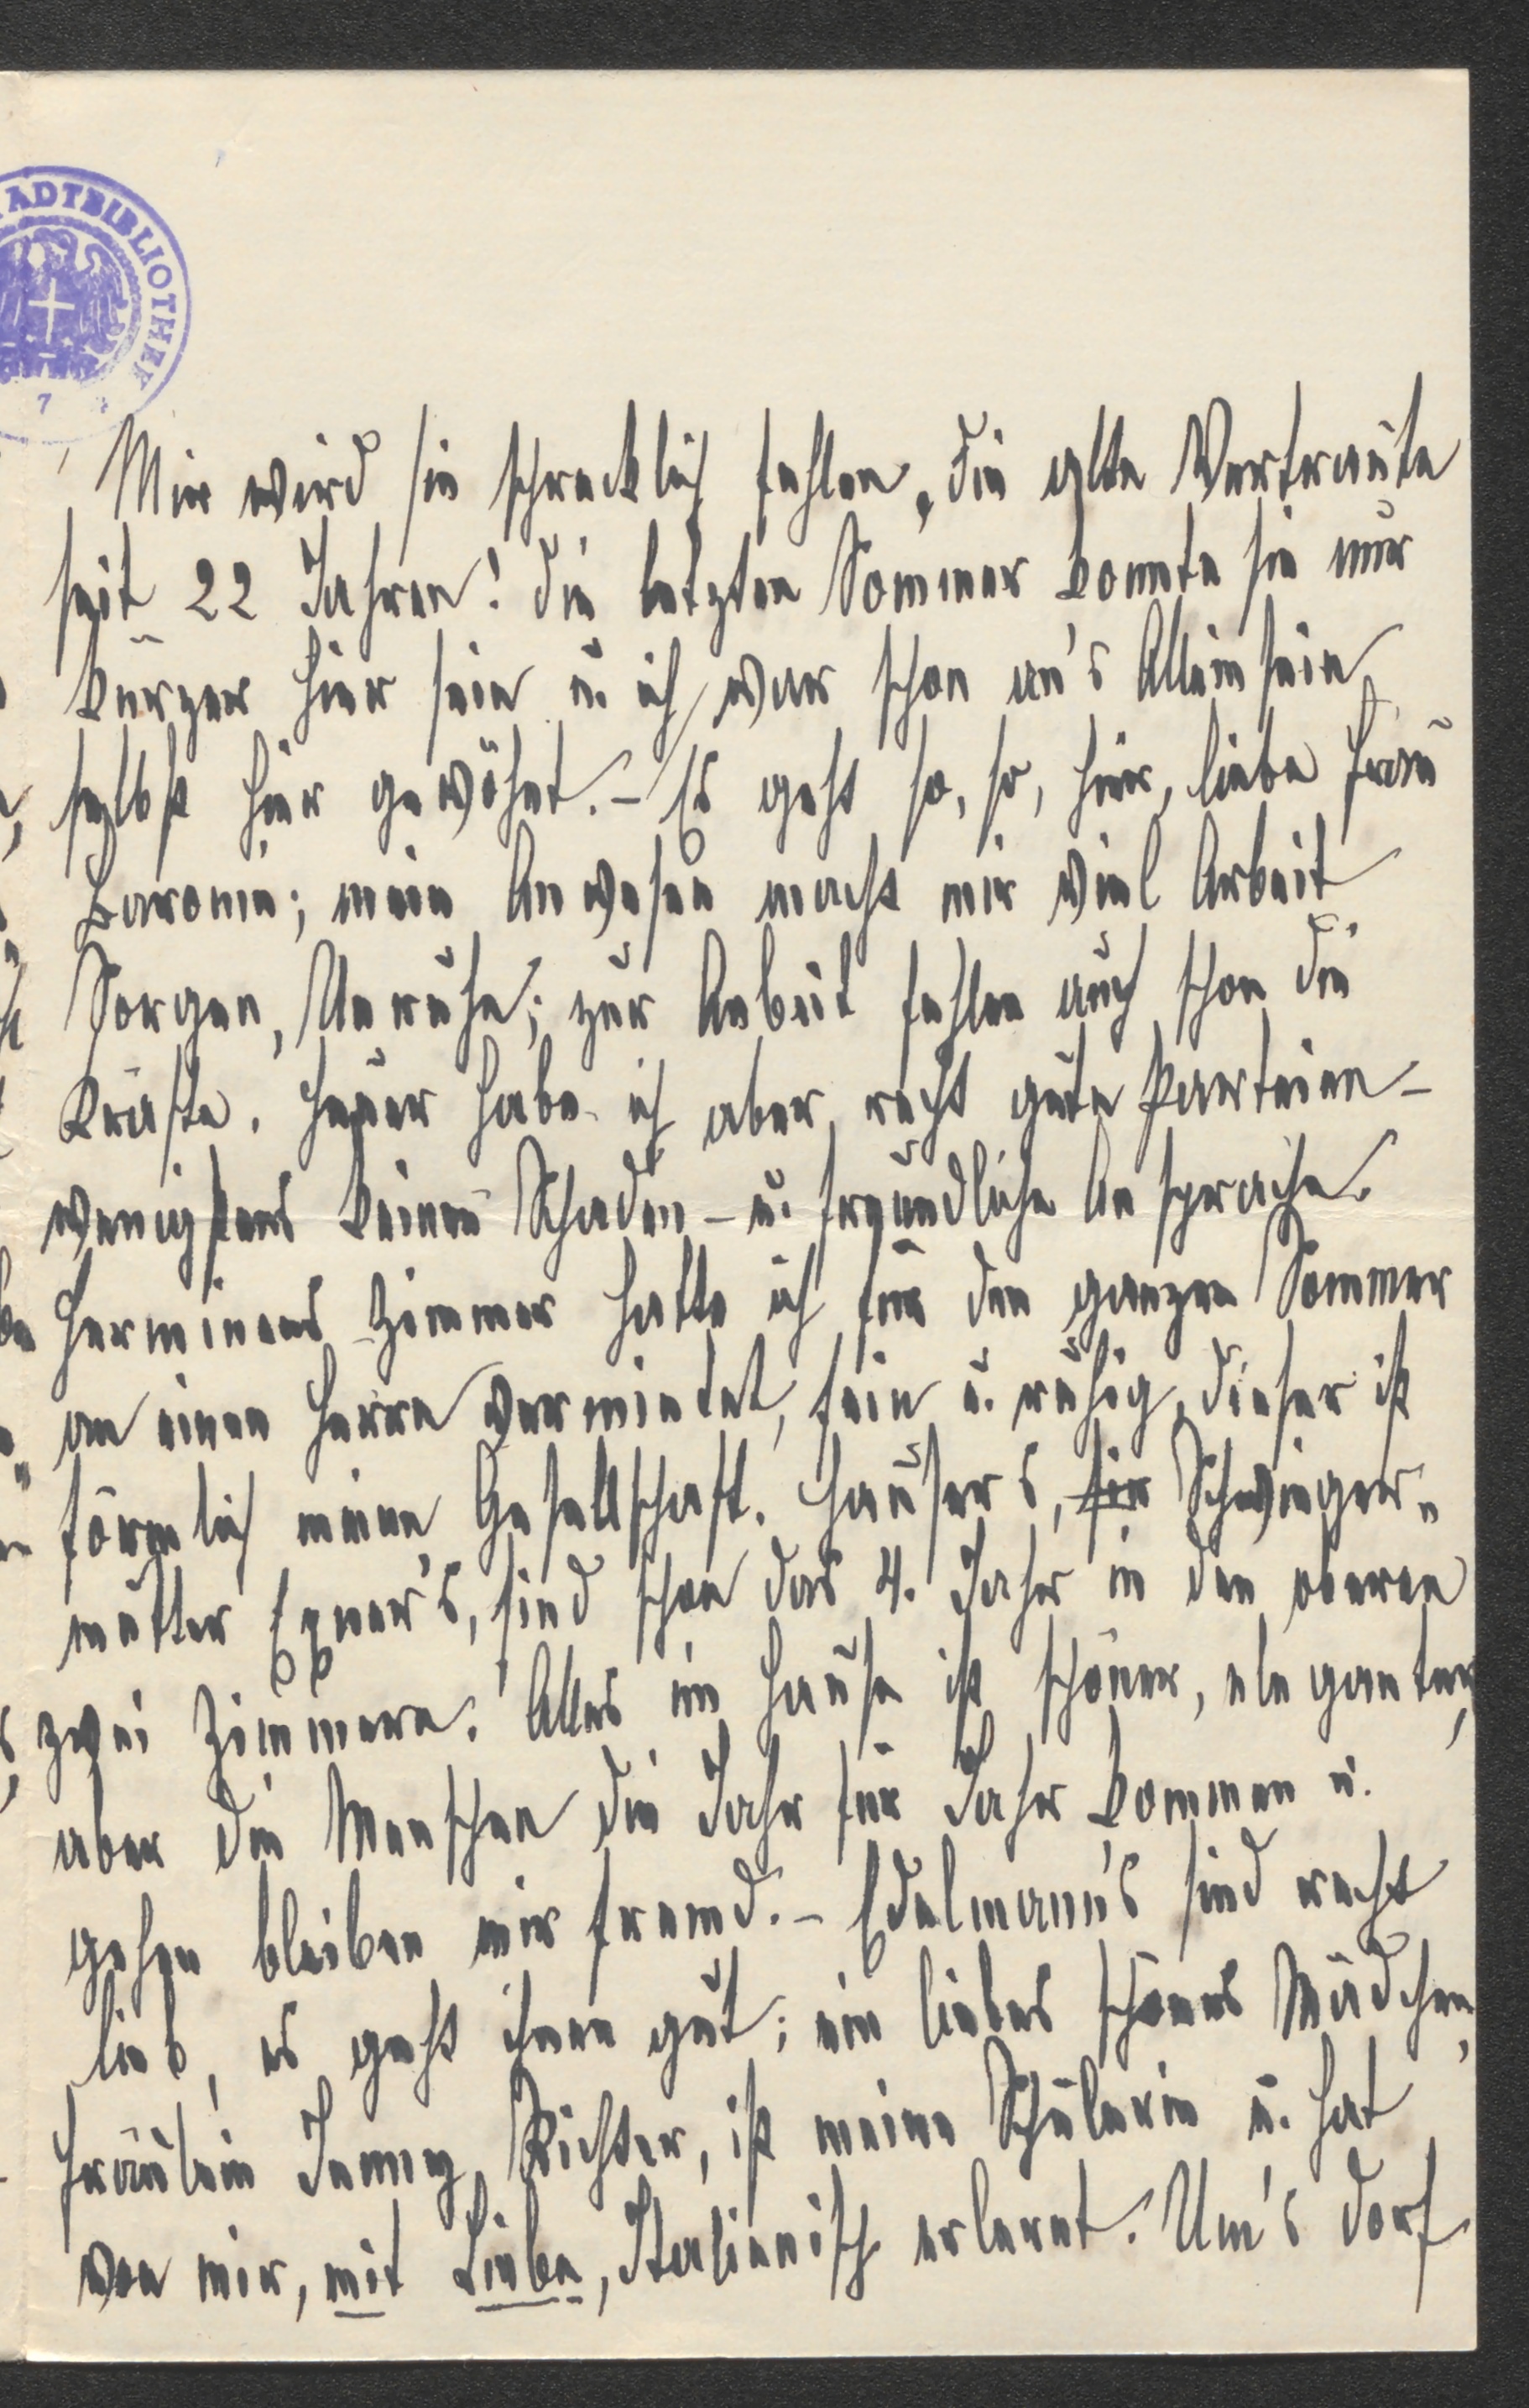 STADTBIBLIOTHEK
Mir wird sie schrecklich fehlen, die alte Vertraute
seit 22 Jahren! Die letzten Sommer konnte sie nur
kürzer hier sein u. ich war schon an's Alleinsein
selbst hier gewöhnt. – Es geht so, so, hier, liebe Frau
Baronin; mein Anwesen macht mir viel Arbeit
Sorgen, Unruhe; zur Arbeit fehlen auch schon die
Kräfte. Heuer habe ich aber recht gute Parteien –
wenigstens keinen Schaden – u. freundliche Ansprache.
Herminens Zimmer hatte ich für den ganzen Sommer
an einen Herrn vermietet, fein u. ruhig, dieser ist
förmlich meine Gesellschaft. Hauser's, Schwieger„
mutter Exner's, sind schon das 4. Jahr in den oberen
zwei Zimmern. Alles im Hause ist schöner, eleganter,
aber die Menschen die Jahr für Jahr kommen u.
gehen bleiben mir fremd. – Edelmann's sind recht
lieb, es geht ihnen gut; ein liebes schönes Mädchen,
Fräulein Jenny Richter, ist meine Schülerin u. hat
von mir, mit Liebe, Italienisch erlernt. Um's Dorf